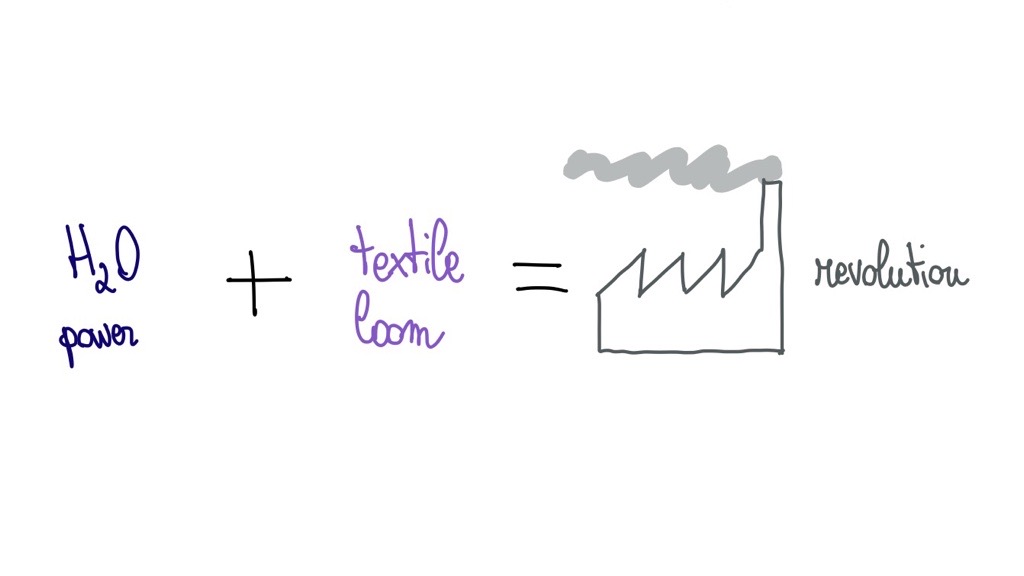 H₂O
power
+
textile
loom
=
revolution